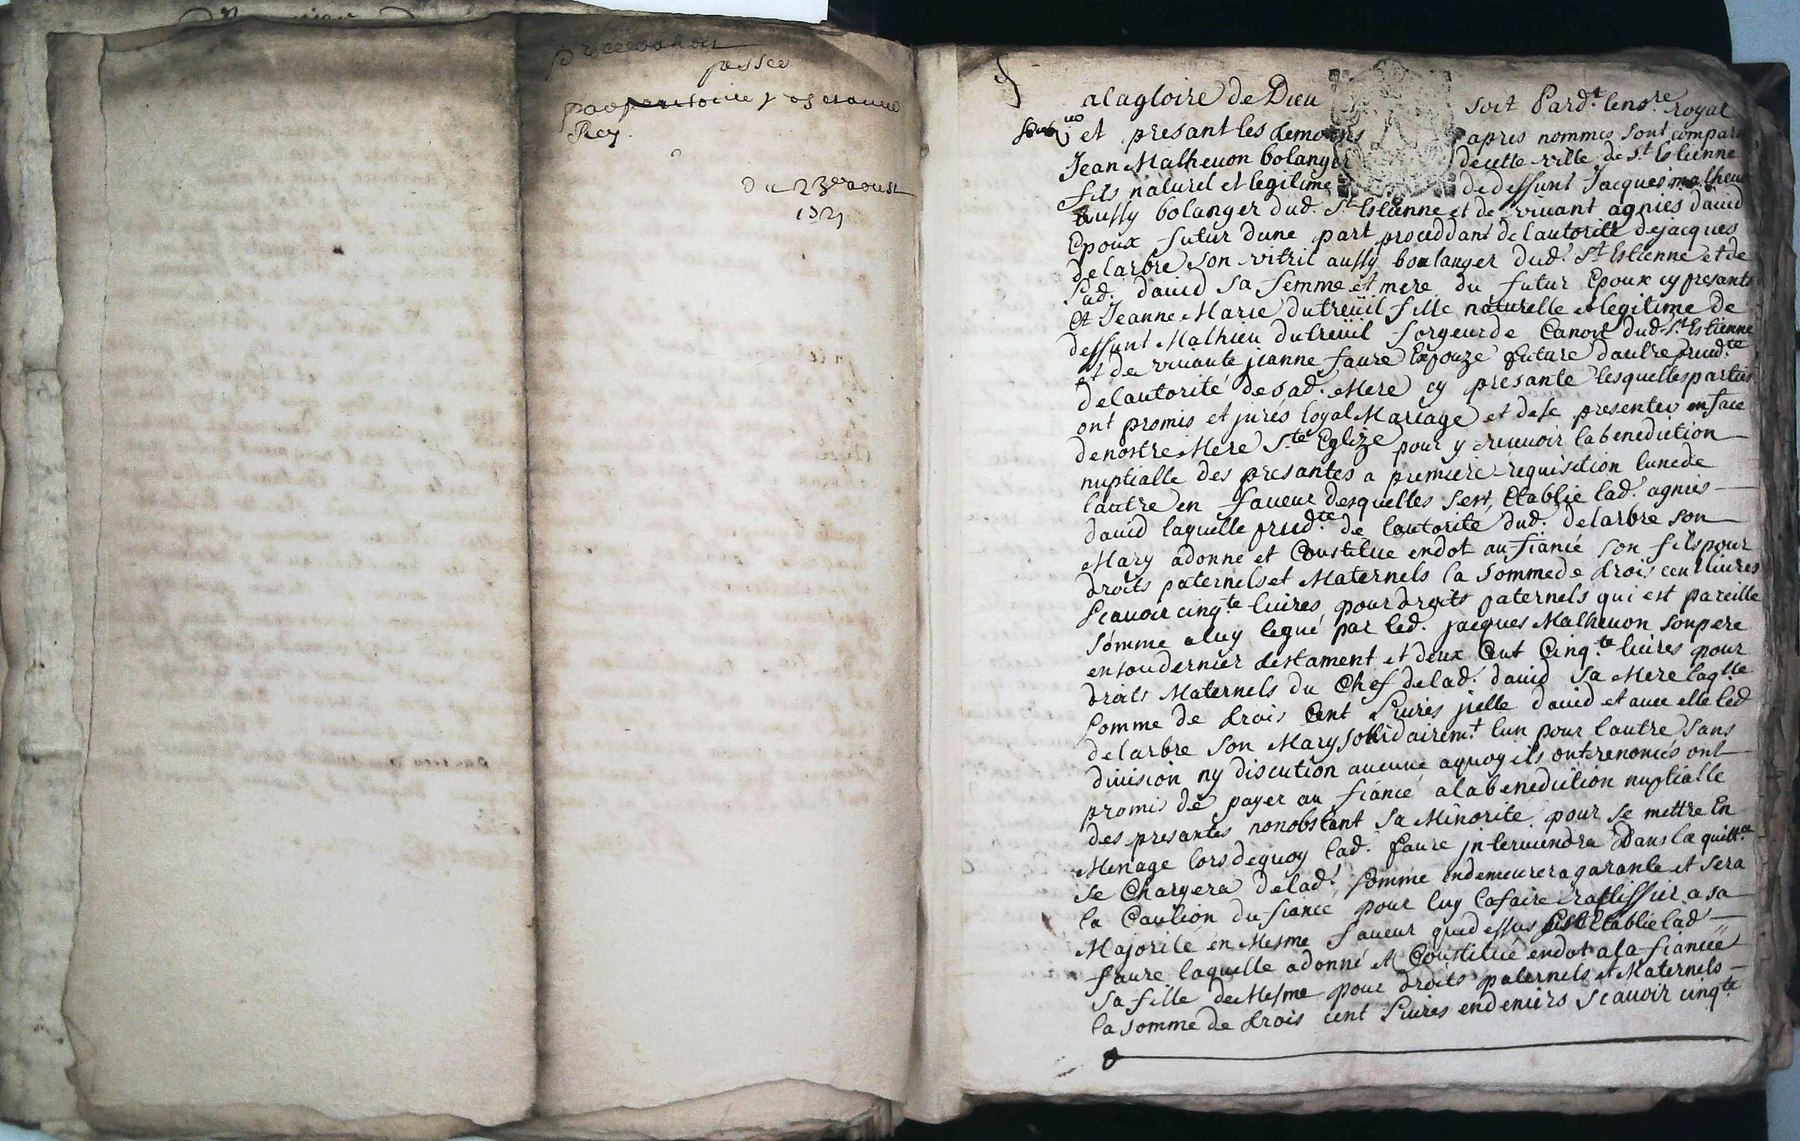 passée
Du 23e aoust
a la gloire de Dieu soit Pard.t le no.re royal
sous.né et presant les temoins apres nommés sont comparu
Jean Matheuon bolanger de cette ville de St Estienne
fils naturel et legitime de deffunt Jacques matheuon
aussy bolanger dud. St Estienne et de viuant agnies david
Epoux futur dune part proceddant de lautorité de jacques
delarbre son vitril aussy boulanger dud. St Estienne et de
lad. david sa femme et mere du futur Epoux cy presants
et Jeanne Marie dutreüil fille naturelle et legitime de
deffunt Mathieu dutreüil forgeur de Canon dud. St Estienne
et de viuante jeanne faure Epouze future dautre proced.te
de lautorité de sad. Mere cy presante lesquelles parties
ont promis et jurés loyal Mariage et de se presenter en face
de nostre Mere Ste Eglize pour y receuoir la benediction
nuptialle des presantes a premiere requisition lun de
lautre en faueur desquelles sest Etablie lad. agnies
david laquelle proced.te de lautorité dud. delarbre son
Mary a donné et Constitué en dot au fiancé son fils pour
droits paternels et Maternels la somme de trois cent liures
scauoir cinq.te liures pour droits paternels qui est pareille
somme a luy legué par led. jacques Matheuon son pere
en son dernier testament et deux Cent Cinq.te liures pour
droits Maternels du Chef de lad. david sa Mere laq.lle
somme de trois Cent liures jcelle david et auec elle led.
delarbre son Mary solidairem.t lun pour lautre sans
diuision ny discution aucune a quoy ils ont renoncés ont
promi de payer au fiancé a la benediction nuptialle
des presantes nonobstant sa Minorité pour se mettre En
Menage lors de quoy lad. faure jnteruiendra Dans la quitt.ce
se Chargera de lad. somme en demeurera garante et sera
la Caution du fiancé pour luy la faire rattiffier a sa
Majorité en Mesme faueur que dessus sest Etablie lad.
faure laquelle a donné et Constitué en dot a la fiancée
sa fille de Mesme pour droits paternels et Maternels
la somme de trois cent liures en deniers scauoir cinq.te